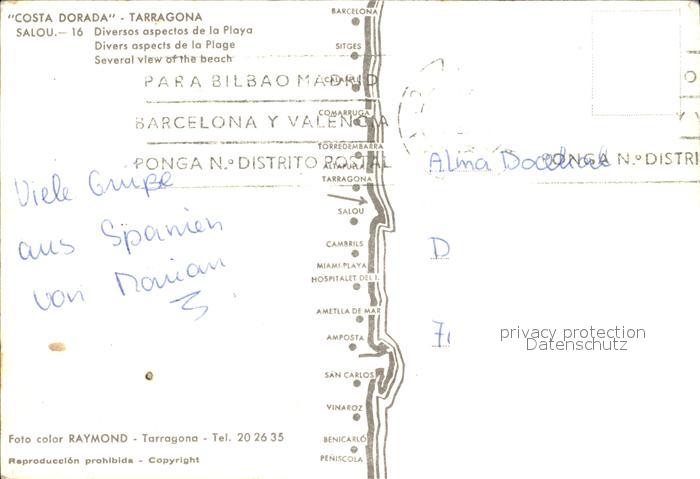 "COSTA DORADA" - TARRAGONA
SALOU.— 16 Diversos aspectos de la Playa
Divers aspects de la Plage
Several view of the beach
PARA BILBAO MADRID
BARCELONA Y VALENCIA
PONGA N.º DISTRITO POSTAL
Viele Grüße
aus Spanien
von
Foto color RAYMOND - Tarragona - Tel. 20 26 35
Reproducción prohibida - Copyright
BARCELONA
SITGES
COMARRUGA
TORREDEMBARRA
ALTAFULLA
TARRAGONA
SALOU
CAMBRILS
MIAMI-PLAYA
HOSPITALET DEL I.
AMETLLA DE MAR
AMPOSTA
SAN CARLOS
VINAROZ
BENICARLÓ
PEÑISCOLA
Alma
PONGA N.º DISTRI
D
privacy protection
Datenschutz